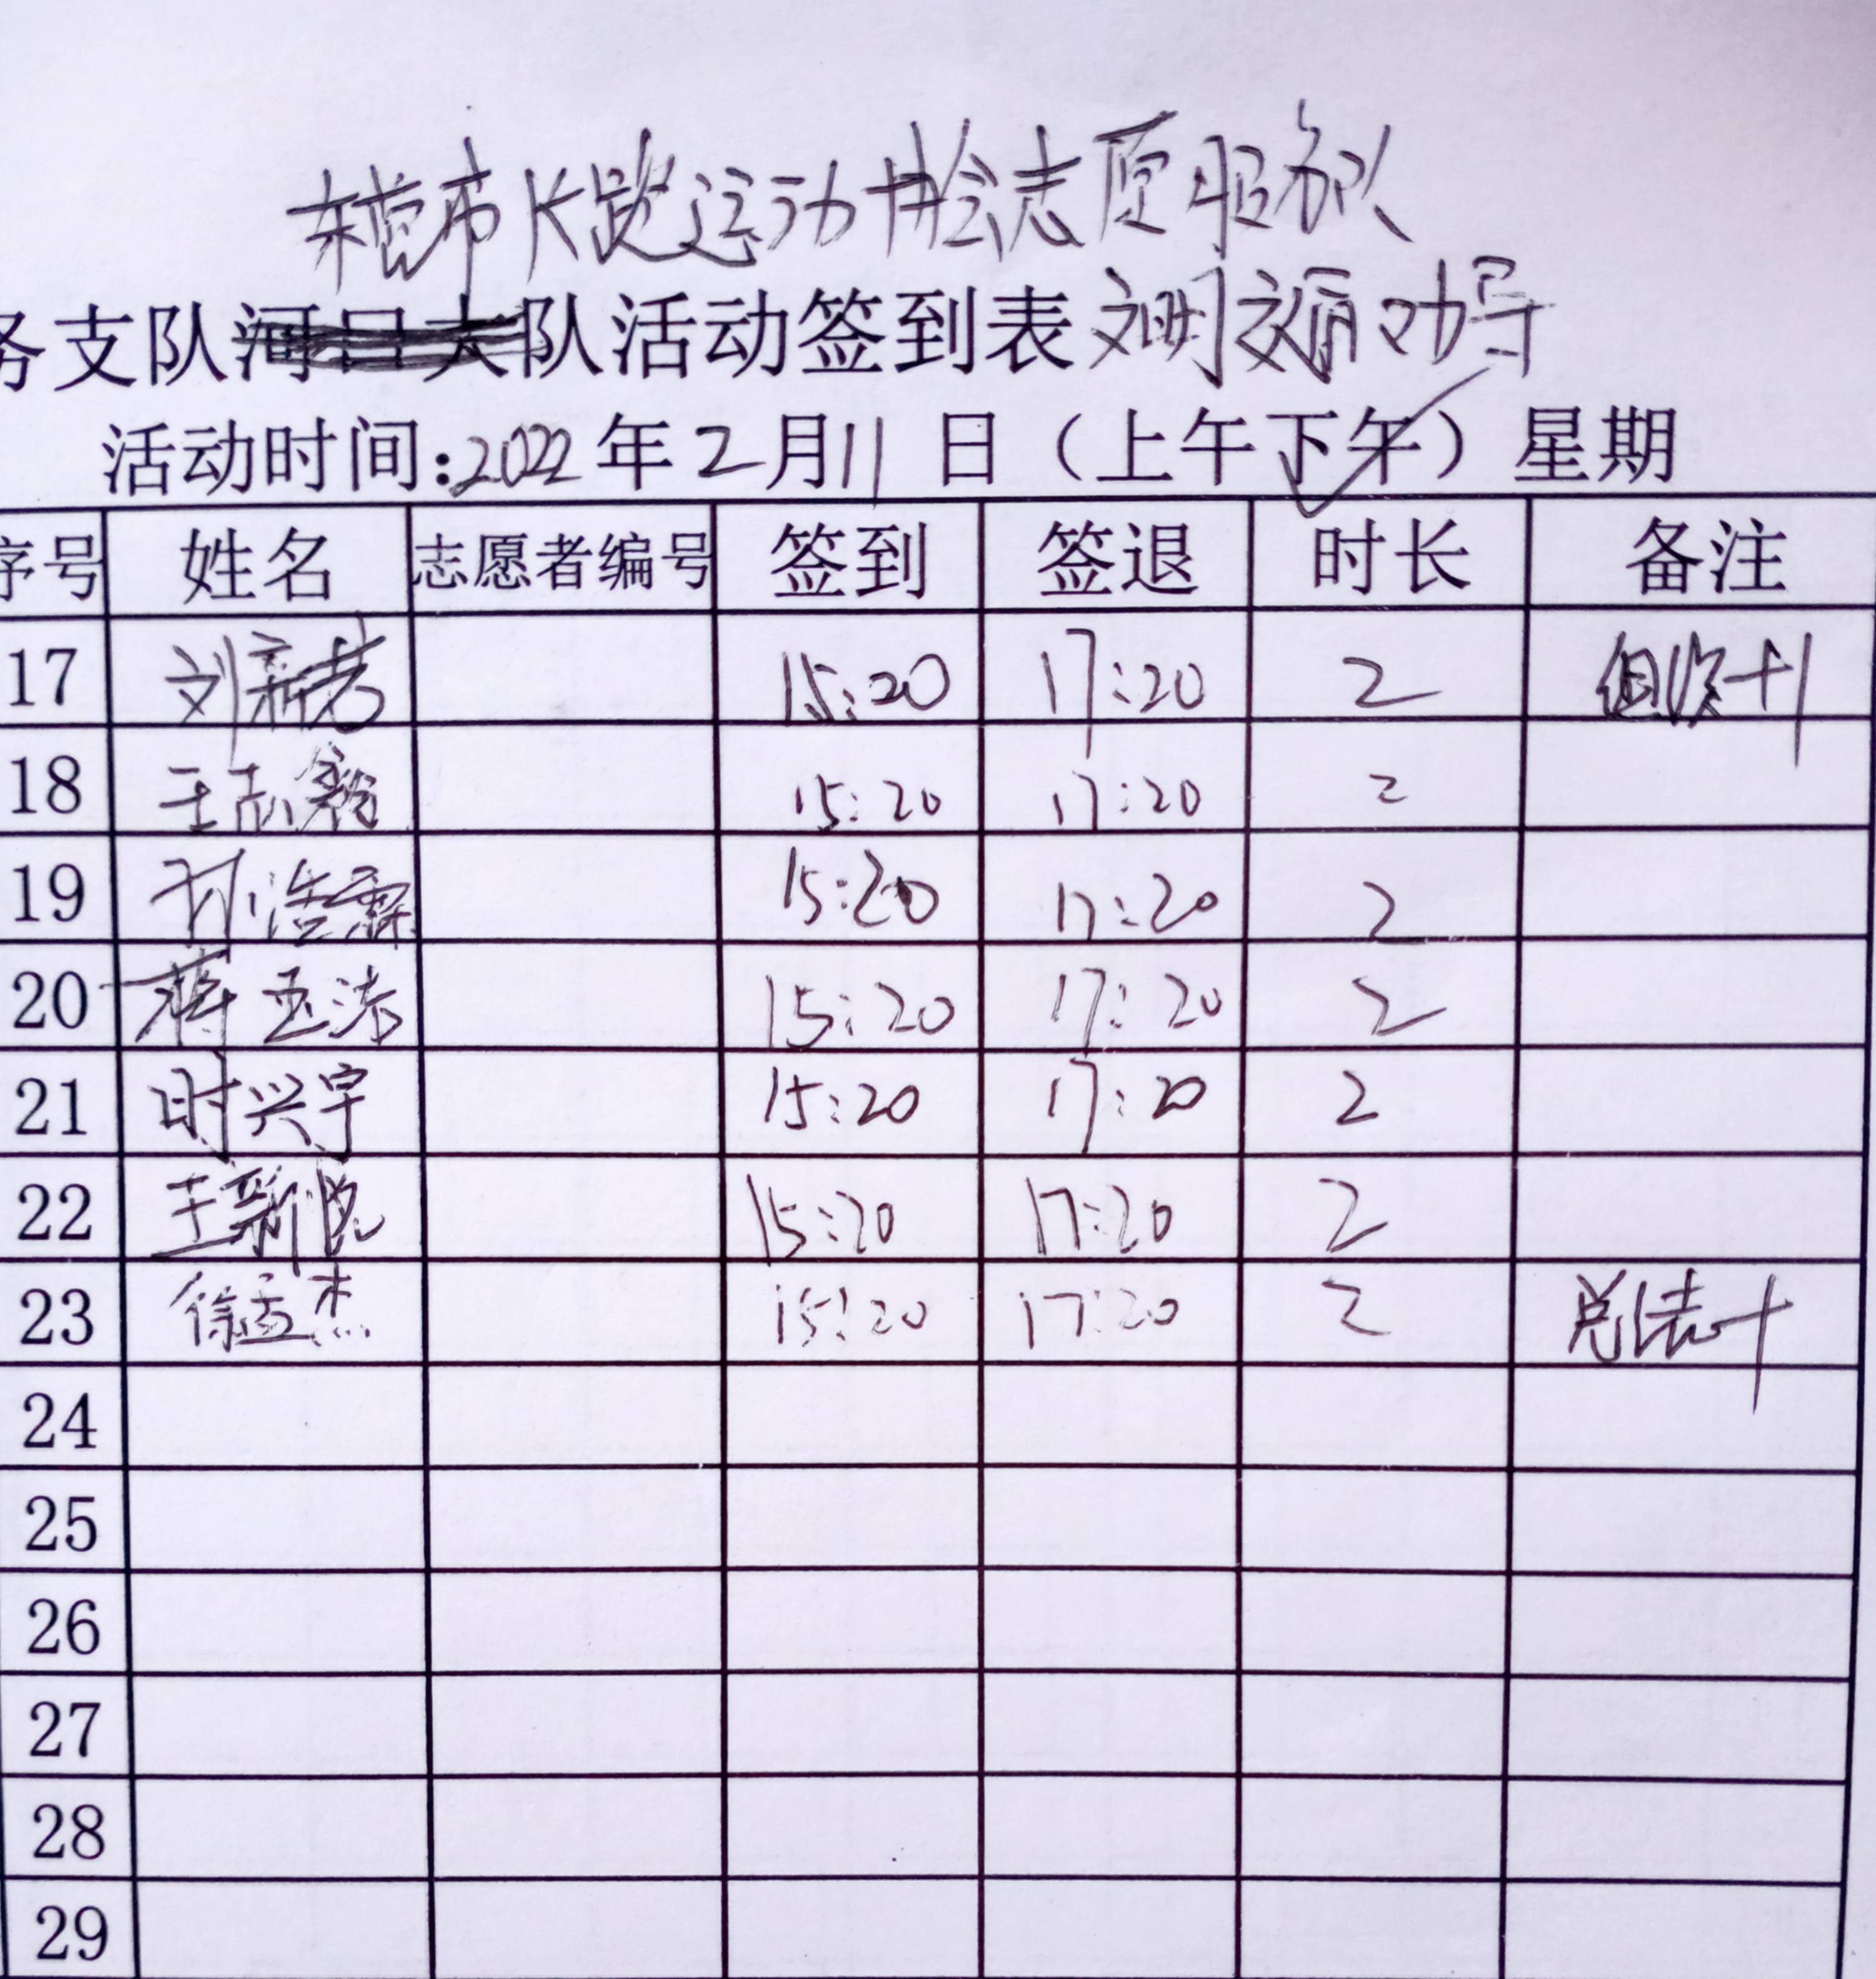 东营市长跑运动协会志愿服务队
务支队河口大队活动签到表 文明交通劝导
活动时间:2022年2月11日（上午下午）星期
序号 姓名 志愿者编号 签到 签退 时长 备注
17 刘新艺 15:20 17:20 2 组织+1
18 王志毅 15:20 17:20 2
19 孙浩霖 15:20 17:20 2
20 蒋玉洁 15:20 17:20 2
21 时兴宇 15:20 17:20 2
22 王新悦 15:20 17:20 2
23 徐孟杰 15:20 17:20 2 总结+1
24
25
26
27
28
29